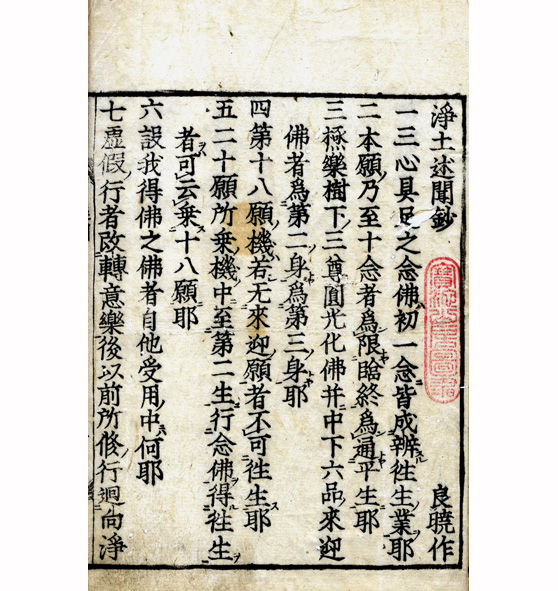 淨土述聞鈔
良曉作
一三心具足之念佛初一念皆成辨徃生業耶
二本願乃至十念者爲限臨終爲通平生耶
三極樂樹下三尊圓光化佛并中下六品來迎
佛者爲第二身爲第三身耶
四第十八願機若无來迎願者不可徃生耶
五二十願所乗機中至第二生行念佛得徃生
者可云乗十八願耶
六設我得佛之佛者自他受用中何耶
七虛假行者改轉意樂後以前所修行迴向淨